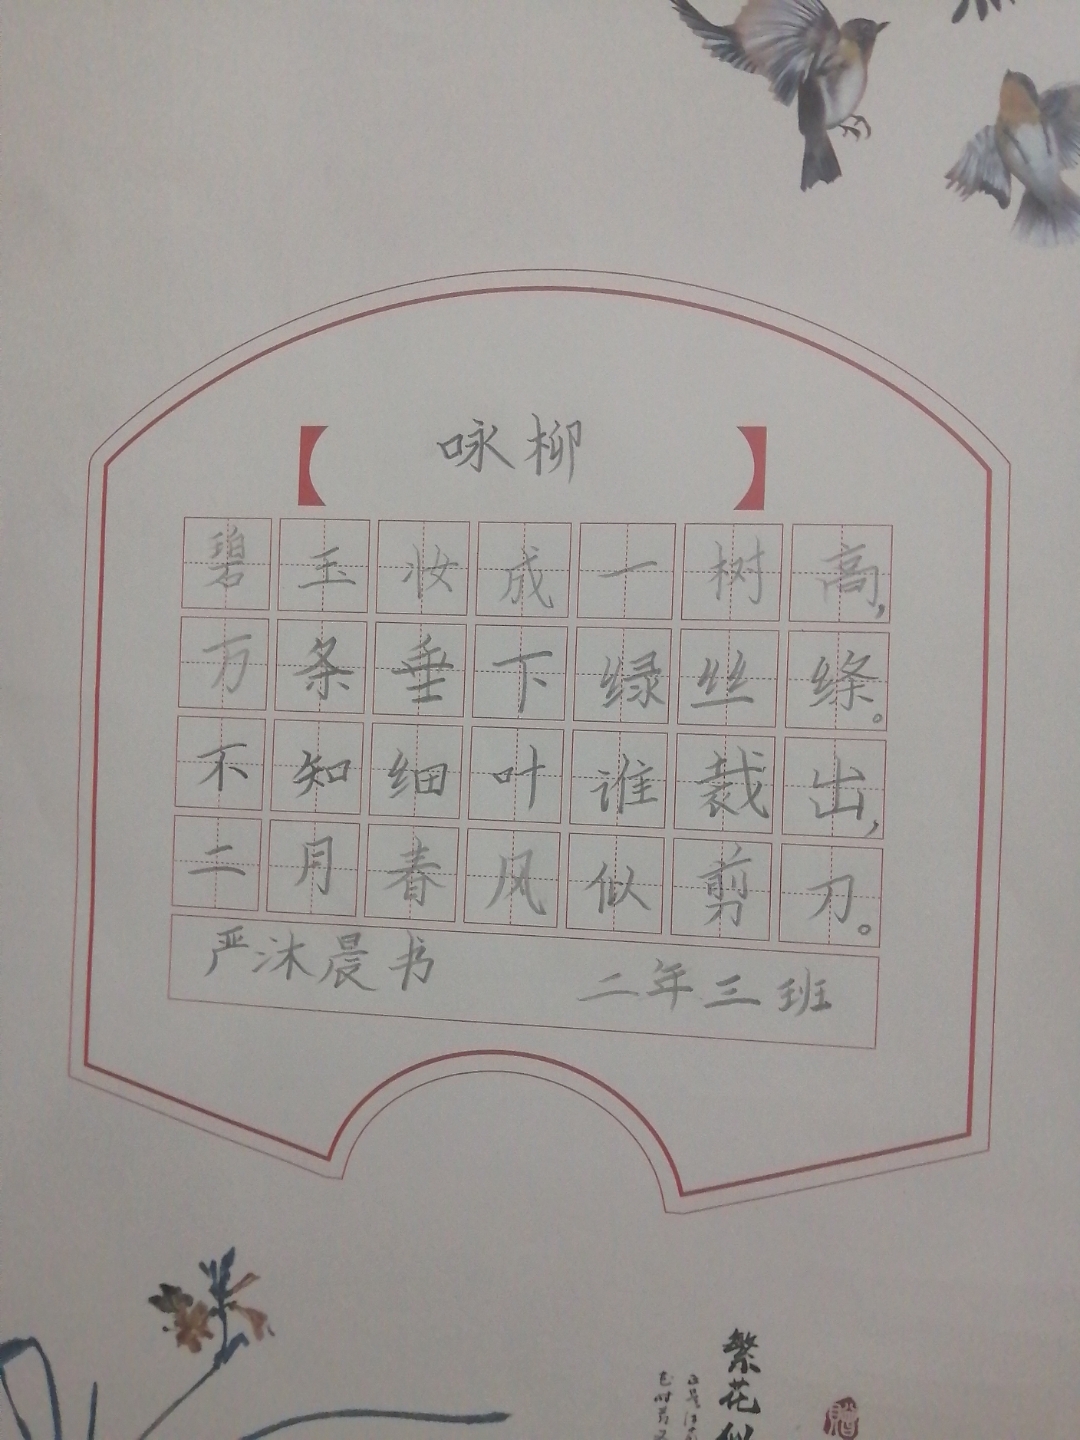 【咏柳】
碧玉妆成一树高,
万条垂下绿丝绦。
不知细叶谁裁出,
二月春风似剪刀。
严沐晨书 二年三班
繁花似